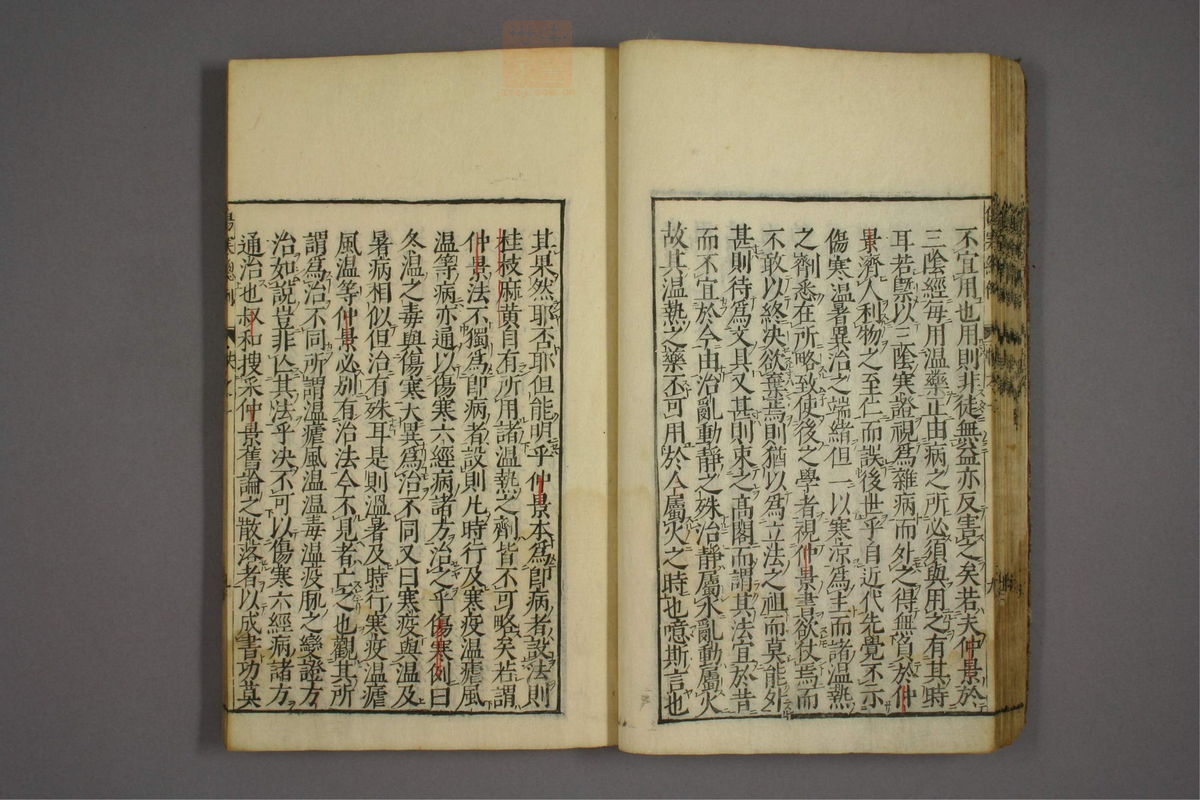 不宜用也用則非徒無益亦反害之矣若夫仲景於
三陰經每用温藥正由病之所必須與用之有其時
耳若槩以三陰寒證視爲雜病而外之得無負於仲
景濟人利物之至仁而誤後世乎自近代先覺不示
傷寒温暑異治之端緒但一以寒凉爲主而諸温熱
之劑悉在所略致使後之學者視仲景書欲仗焉而
不敢以終决欲棄焉則猶以爲立法之祖而莫能外
甚則待爲文具又甚則束之高閣而謂其法宜於昔
而不宜於今由治亂動静之殊治静屬水亂動屬火
故其温熱之藥不可用於今屬火之時也噫斯言也
其果然耶否耶但能明乎仲景本爲卽病者設法則
桂枝麻黄自有所用諸温熱之劑皆不可略矣若謂
仲景法不獨爲卽病者設則凡時行及寒疫温瘧風
温等病亦通以傷寒六經病諸方治之乎傷寒例曰
冬温之毒與傷寒大異爲治不同又曰寒疫與温及
暑病相似但治有殊耳是則温暑及時行寒疫温瘧
風温等仲景必别有治法今不見者亡之也觀其所
謂爲治不同所謂温瘧風温温毒温疫脈之變證方
治如說豈非亾其法乎决不可以傷寒六經病諸方
通治也叔和搜采仲景舊論之散落者以成書功莫